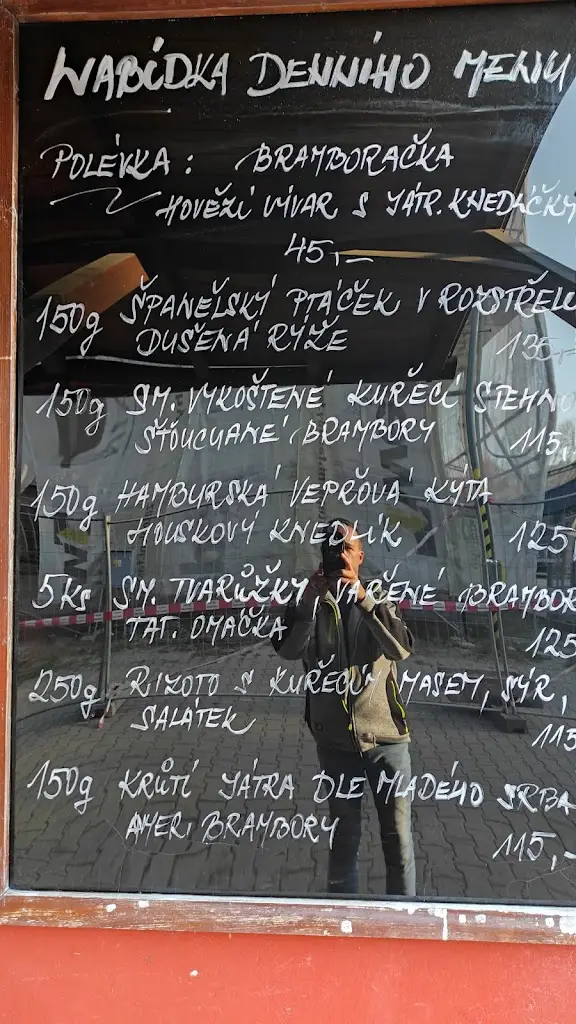 NABÍDKA DENNÍHO MENU
POLÉVKA : BRAMBORAČKA
HOVĚZÍ VÝVAR S JÁTR. KNEDLÍČKY
45,-
150g ŠPANĚLSKÝ PTÁČEK V ROZSTŘELU
DUŠENÁ RÝŽE 135,
150g SM. VYKOŠTĚNÉ KUŘECÍ STEHNO
ŠŤOUCHANÉ BRAMBORY 115,
150g HAMBURSKÁ VEPŘOVÁ KÝTA
HOUSKOVÝ KNEDLÍK 125
5ks SM. TVARŮŽKY, VAŘENÉ BRAMBOR
TAT. OMAČKA 125
250g RIZOTO S KUŘECÍM MASEM, SÝR,
SALÁTEK 115
150g KRŮTÍ JÁTRA DLE MLADÉHO SRBA
AMER. BRAMBORY 115,-